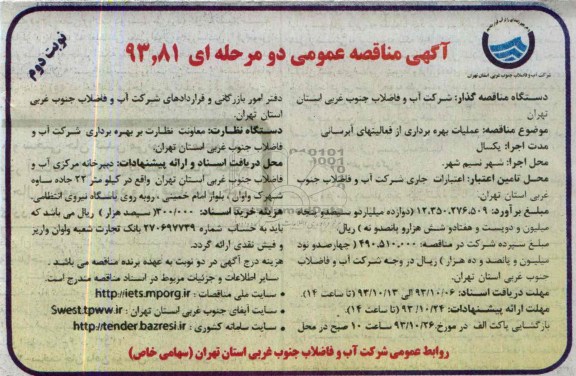 نوبت دوم
آگهی مناقصه عمومی دو مرحله ای ۹۳٫۸۱
شرکت آب و فاضلاب جنوب غربی استان تهران
دستگاه مناقصه گذار: شرکت آب و فاضلاب جنوب غربی استان
تهران
موضوع مناقصه: عملیات بهره برداری از فعالیتهای آبرسانی
مدت اجرا: یکسال
محل اجرا: شهر نسیم شهر.
محل تامین اعتبار: اعتبارات جاری شرکت آب و فاضلاب جنوب
غربی استان تهران.
مبلغ برآورد: ۱۲٫۳۵۰٫۲۷۶٫۵۰۹ (دوازده میلیاردو سیصدو پنجاه
میلیون و دویست و هفتادو شش هزارو پانصدو نه) ریال
مبلغ سپرده شرکت در مناقصه: ۴۹۰٫۵۱۰٫۰۰۰ (چهارصدو نود
میلیون و پانصد و ده هزار) ریال در وجه شرکت آب و فاضلاب
جنوب غربی استان تهران.
مهلت دریافت اسناد: ۹۳/۱۰/۰۶ الی ۹۳/۱۰/۱۳ (تا ساعت ۱۴).
مهلت ارائه پیشنهادات: ۹۳/۱۰/۲۴ (تا ساعت ۱۴).
بازگشایی پاکت الف در مورخ ۹۳/۱۰/۲۶ ساعت ۱۰ صبح در محل
دفتر امور بازرگانی و قراردادهای شرکت آب و فاضلاب جنوب غربی
استان تهران.
دستگاه نظارت: معاونت نظارت بر بهره برداری شرکت آب و
فاضلاب جنوب غربی استان تهران.
محل دریافت اسناد و ارائه پیشنهادات: دبیرخانه مرکزی آب و
فاضلاب جنوب غربی استان تهران واقع در کیلو متر ۲۲ جاده ساوه
شهرک واوان ، بلوار امام خمینی ،روبه روی باشگاه نیروی انتظامی.
هزینه خرید اسناد: ۳۰۰/۰۰۰ (سیصد هزار) ریال می باشد که
باید به حساب شماره ۲۷۰۶۹۷۷۳۹ بانک تجارت شعبه واوان واریز
و فیش نقدی ارائه گردد.
هزینه درج آگهی در دو نوبت به عهده برنده مناقصه می باشد .
سایر اطلاعات و جزئیات مربوط در اسناد مناقصه مندرج است.
• سایت ملی مناقصات : http://iets.mporg.ir
• سایت آبفای جنوب غربی استان تهران : Swest.tpww.ir
• سایت سامانه کشوری : http://tender.bazresi.ir
روابط عمومی شرکت آب و فاضلاب جنوب غربی استان تهران (سهامی خاص)